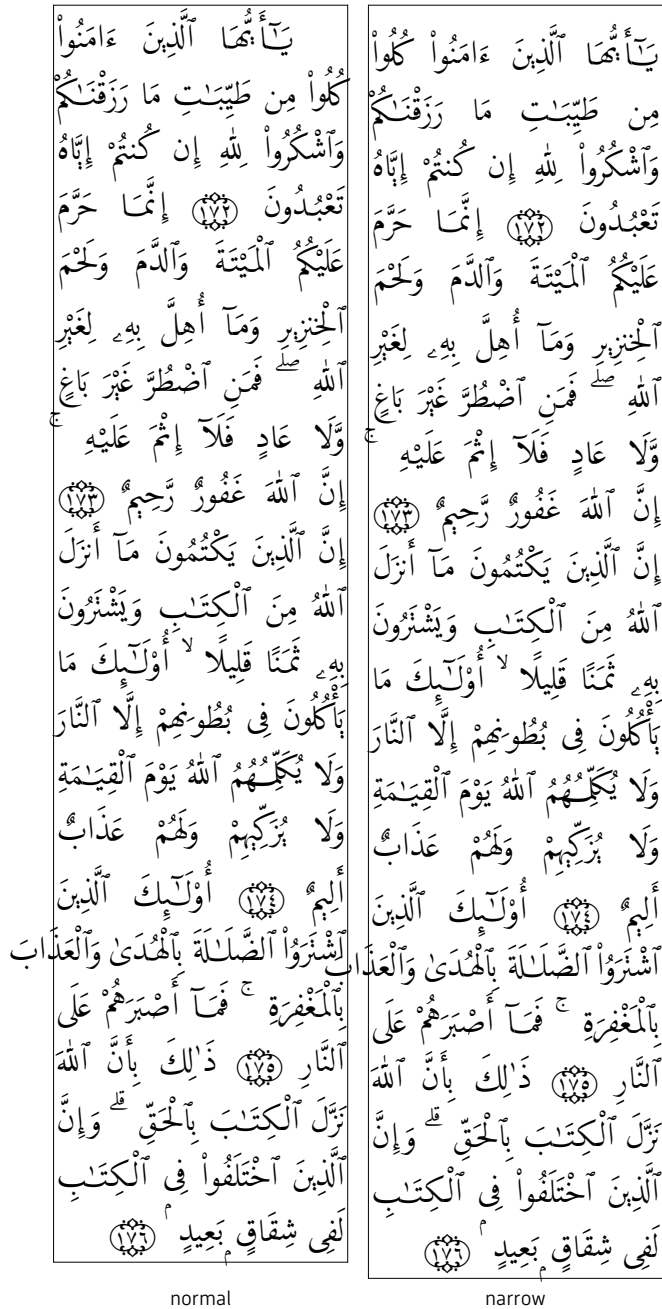 يَـٰٓأَيُّهَا ٱلَّذِينَ ءَامَنُوا۟
كُلُوا۟ مِن طَيِّبَـٰتِ مَا رَزَقْنَـٰكُمْ
وَٱشْكُرُوا۟ لِلَّهِ إِن كُنتُمْ إِيَّاهُ
تَعْبُدُونَ ۝١٧٢ إِنَّمَا حَرَّمَ
عَلَيْكُمُ ٱلْمَيْتَةَ وَٱلدَّمَ وَلَحْمَ
ٱلْخِنزِيرِ وَمَآ أُهِلَّ بِهِۦ لِغَيْرِ
ٱللَّهِ ۖ فَمَنِ ٱضْطُرَّ غَيْرَ بَاغٍ
وَّلَا عَادٍ فَلَآ إِثْمَ عَلَيْهِ ۚ
إِنَّ ٱللَّهَ غَفُورٌ رَّحِيمٌ ۝١٧٣
إِنَّ ٱلَّذِينَ يَكْتُمُونَ مَآ أَنزَلَ
ٱللَّهُ مِنَ ٱلْكِتَـٰبِ وَيَشْتَرُونَ
بِهِۦ ثَمَنًا قَلِيلًا ۙ أُو۟لَـٰٓئِكَ مَا
يَأْكُلُونَ فِى بُطُونِهِمْ إِلَّا ٱلنَّارَ
وَلَا يُكَلِّمُهُمُ ٱللَّهُ يَوْمَ ٱلْقِيَـٰمَةِ
وَلَا يُزَكِّيهِمْ وَلَهُمْ عَذَابٌ
أَلِيمٌ ۝١٧٤ أُو۟لَـٰٓئِكَ ٱلَّذِينَ
ٱشْتَرَوُا۟ ٱلضَّلَـٰلَةَ بِٱلْهُدَىٰ وَٱلْعَذَابَ
بِٱلْمَغْفِرَةِ ۚ فَمَآ أَصْبَرَهُمْ عَلَى
ٱلنَّارِ ۝١٧٥ ذَٰلِكَ بِأَنَّ ٱللَّهَ
نَزَّلَ ٱلْكِتَـٰبَ بِٱلْحَقِّ ۗ وَإِنَّ
ٱلَّذِينَ ٱخْتَلَفُوا۟ فِى ٱلْكِتَـٰبِ
لَفِى شِقَاقٍۭ بَعِيدٍ ۢ ۝١٧٦
normal
يَـٰٓأَيُّهَا ٱلَّذِينَ ءَامَنُوا۟ كُلُوا۟
مِن طَيِّبَـٰتِ مَا رَزَقْنَـٰكُمْ
وَٱشْكُرُوا۟ لِلَّهِ إِن كُنتُمْ إِيَّاهُ
تَعْبُدُونَ ۝١٧٢ إِنَّمَا حَرَّمَ
عَلَيْكُمُ ٱلْمَيْتَةَ وَٱلدَّمَ وَلَحْمَ
ٱلْخِنزِيرِ وَمَآ أُهِلَّ بِهِۦ لِغَيْرِ
ٱللَّهِ ۖ فَمَنِ ٱضْطُرَّ غَيْرَ بَاغٍ
وَّلَا عَادٍ فَلَآ إِثْمَ عَلَيْهِ ۚ
إِنَّ ٱللَّهَ غَفُورٌ رَّحِيمٌ ۝١٧٣
إِنَّ ٱلَّذِينَ يَكْتُمُونَ مَآ أَنزَلَ
ٱللَّهُ مِنَ ٱلْكِتَـٰبِ وَيَشْتَرُونَ
بِهِۦ ثَمَنًا قَلِيلًا ۙ أُو۟لَـٰٓئِكَ مَا
يَأْكُلُونَ فِى بُطُونِهِمْ إِلَّا ٱلنَّارَ
وَلَا يُكَلِّمُهُمُ ٱللَّهُ يَوْمَ ٱلْقِيَـٰمَةِ
وَلَا يُزَكِّيهِمْ وَلَهُمْ عَذَابٌ
أَلِيمٌ ۝١٧٤ أُو۟لَـٰٓئِكَ ٱلَّذِينَ
ٱشْتَرَوُا۟ ٱلضَّلَـٰلَةَ بِٱلْهُدَىٰ وَٱلْعَذَابَ
بِٱلْمَغْفِرَةِ ۚ فَمَآ أَصْبَرَهُمْ عَلَى
ٱلنَّارِ ۝١٧٥ ذَٰلِكَ بِأَنَّ ٱللَّهَ
نَزَّلَ ٱلْكِتَـٰبَ بِٱلْحَقِّ ۗ وَإِنَّ
ٱلَّذِينَ ٱخْتَلَفُوا۟ فِى ٱلْكِتَـٰبِ
لَفِى شِقَاقٍۭ بَعِيدٍ ۢ ۝١٧٦
narrow